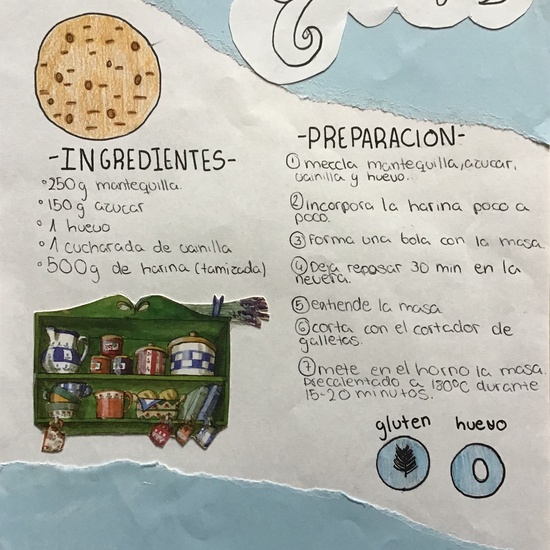 -INGREDIENTES-
250g mantequilla.
150g azucar
1 huevo
1 cucharada de vainilla
500g de harina (tamizada)
-PREPARACION-
① mezcla mantequilla, azucar,
vainilla y huevo.
② incorpora la harina poco a
poco.
③ Forma una bola con la masa.
④ Deja reposar 30 min en la
nevera.
⑤ entiende la masa
⑥ corta con el cortador de
galletas.
⑦ mete en el horno la masa.
Precalentado a 180°C durante
15-20 minutos.
gluten huevo